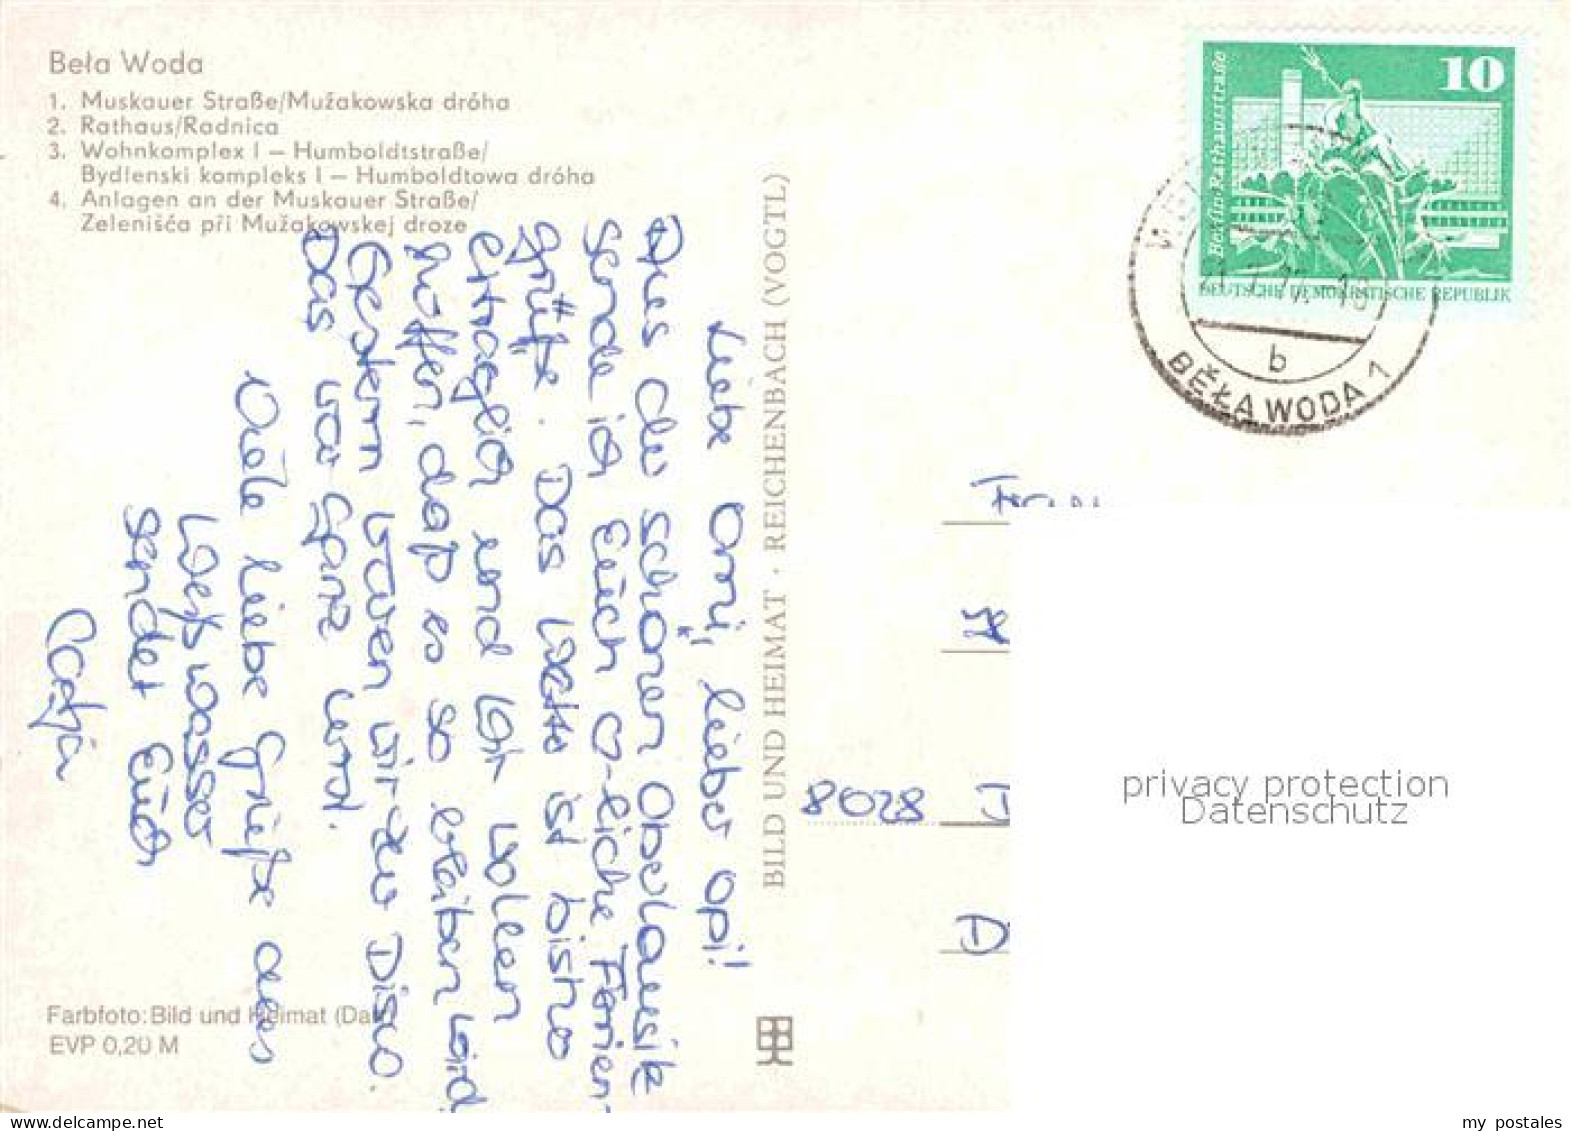 Beła Woda
1. Muskauer Straße/Mužakowska dróha
2. Rathaus/Radnica
3. Wohnkomplex I – Humboldtstraße/
Bydlenski kompleks I – Humboldtowa dróha
4. Anlagen an der Muskauer Straße/
Zelenišća při Mužakowskej droze
Liebe Omi, lieber Opi!
Aus der schönen Oberlausitz
sende ich Euch ♡-liche Ferien-
grüße. Das Wetter ist bisher
erträglich und wir wollen
hoffen, daß es so bleiben wird.
Gestern waren wir zur Disco.
Das war ganz
Viele liebe Grüße aus
Weißwasser
sendet Euch
Katja
Farbfoto: Bild und Heimat
EVP 0,20 M
BILD UND HEIMAT · REICHENBACH (VOGTL)
10
Berlin, Rathausstraße
DEUTSCHE DEMOKRATISCHE REPUBLIK
b
BĚŁA WODA 1
8028
privacy protection
Datenschutz
www.delcampe.net
my_postales